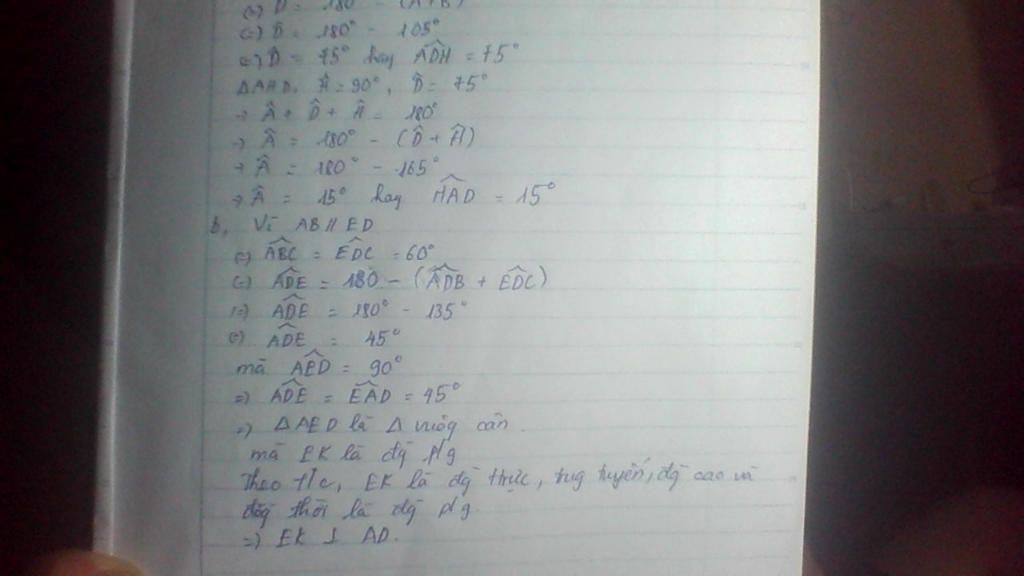 (=) D̂ = 180 - (Â+B̂)
(=) D̂ = 180° - 105°
(=) D̂ = 75° hay ADH = 75°
ΔAHD, Ĥ = 90°, D̂ = 75°
→ Â + D̂ + Ĥ = 180°
→ Â = 180° - (D̂ + Ĥ)
→ Â = 180° - 165°
→ Â = 15° hay HAD = 15°
b, Vì AB // ED
(=) ABC = EDC = 60°
(=) ADE = 180 - (ADB + EDC)
(=) ADE = 180° - 135°
(=) ADE = 45°
mà AED = 90°
=) ADE = EAD = 45°
=) ΔAED là Δ vuôg cân.
mà EK là đg p/g
Theo t/c, EK là đg trực, trug tuyến, đg cao và
đồg thời là đg p/g.
=) EK ⊥ AD.